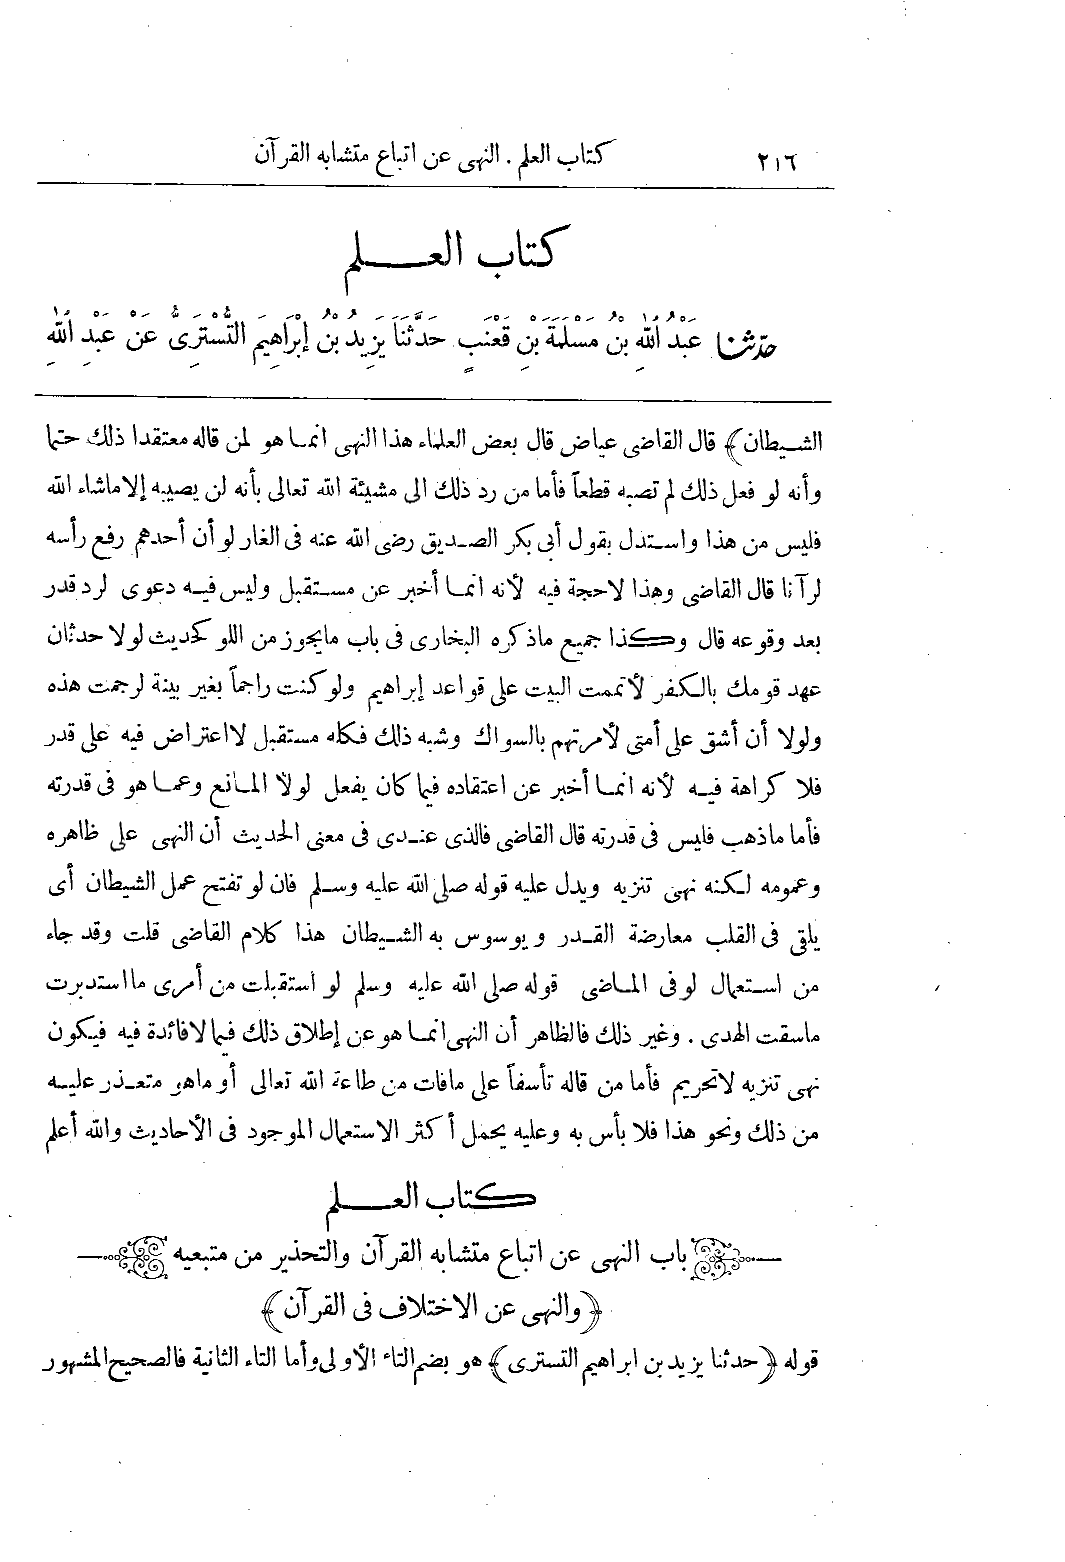 ٢١٦ كتاب العلم . النهى عن اتباع متشابه القرآن
كتاب العـــلم
حدّثنا عَبْدُ اللهِ بْنُ مَسْلَمَةَ بْنِ قَعْنَبٍ حَدَّثَنَا يَزِيدُ بْنُ إِبْرَاهِيمَ التُّسْتَرِىُّ عَنْ عَبْدِ اللهِ
الشيطان﴾ قال القاضى عياض قال بعض العلماء هذا النهى انما هو لمن قاله معتقدا ذلك حتما
وأنه لو فعل ذلك لم تصبه قطعاً فأما من رد ذلك الى مشيئة الله تعالى بأنه لن يصيبه إلا ماشاء الله
فليس من هذا واستدل بقول أبى بكر الصديق رضى الله عنه فى الغار لو أن أحدهم رفع رأسه
لرآنا قال القاضى وهذا لاحجة فيه لأنه انما أخبر عن مستقبل وليس فيه دعوى لرد قدر
بعد وقوعه قال وكذا جميع ماذكره البخارى فى باب مايجوز من اللو كحديث لولا حدثان
عهد قومك بالكفر لأتممت البيت على قواعد إبراهيم ولو كنت راجماً بغير بينة لرجمت هذه
ولولا أن أشق على أمتى لأمرتهم بالسواك وشبه ذلك فكله مستقبل لا اعتراض فيه على قدر
فلا كراهة فيه لأنه انما أخبر عن اعتقاده فيما كان يفعل لولا المانع وعما هو فى قدرته
فأما ماذهب فليس فى قدرته قال القاضى فالذى عندى فى معنى الحديث أن النهى على ظاهره
وعمومه لكنه نهى تنزيه ويدل عليه قوله صلى الله عليه وسلم فان لو تفتح عمل الشيطان أى
يلقى فى القلب معارضة القدر ويوسوس به الشيطان هذا كلام القاضى قلت وقد جاء
من استعمال لو فى الماضى قوله صلى الله عليه وسلم لو استقبلت من أمرى ما استدبرت
ماسقت الهدى . وغير ذلك فالظاهر أن النهى انما هو عن إطلاق ذلك فيما لا فائدة فيه فيكون
نهى تنزيه لا تحريم فأما من قاله تأسفاً على مافات من طاعة الله تعالى أو ماهو متعذر عليه
من ذلك ونحو هذا فلا بأس به وعليه يحمل أكثر الاستعمال الموجود فى الأحاديث والله أعلم
كتاب العـــلم
باب النهى عن اتباع متشابه القرآن والتحذير من متبعيه
﴿والنهى عن الاختلاف فى القرآن﴾
قوله ﴿حدثنا يزيد بن ابراهيم التسترى﴾ هو بضم التاء الأولى وأما التاء الثانية فالصحيح المشهور